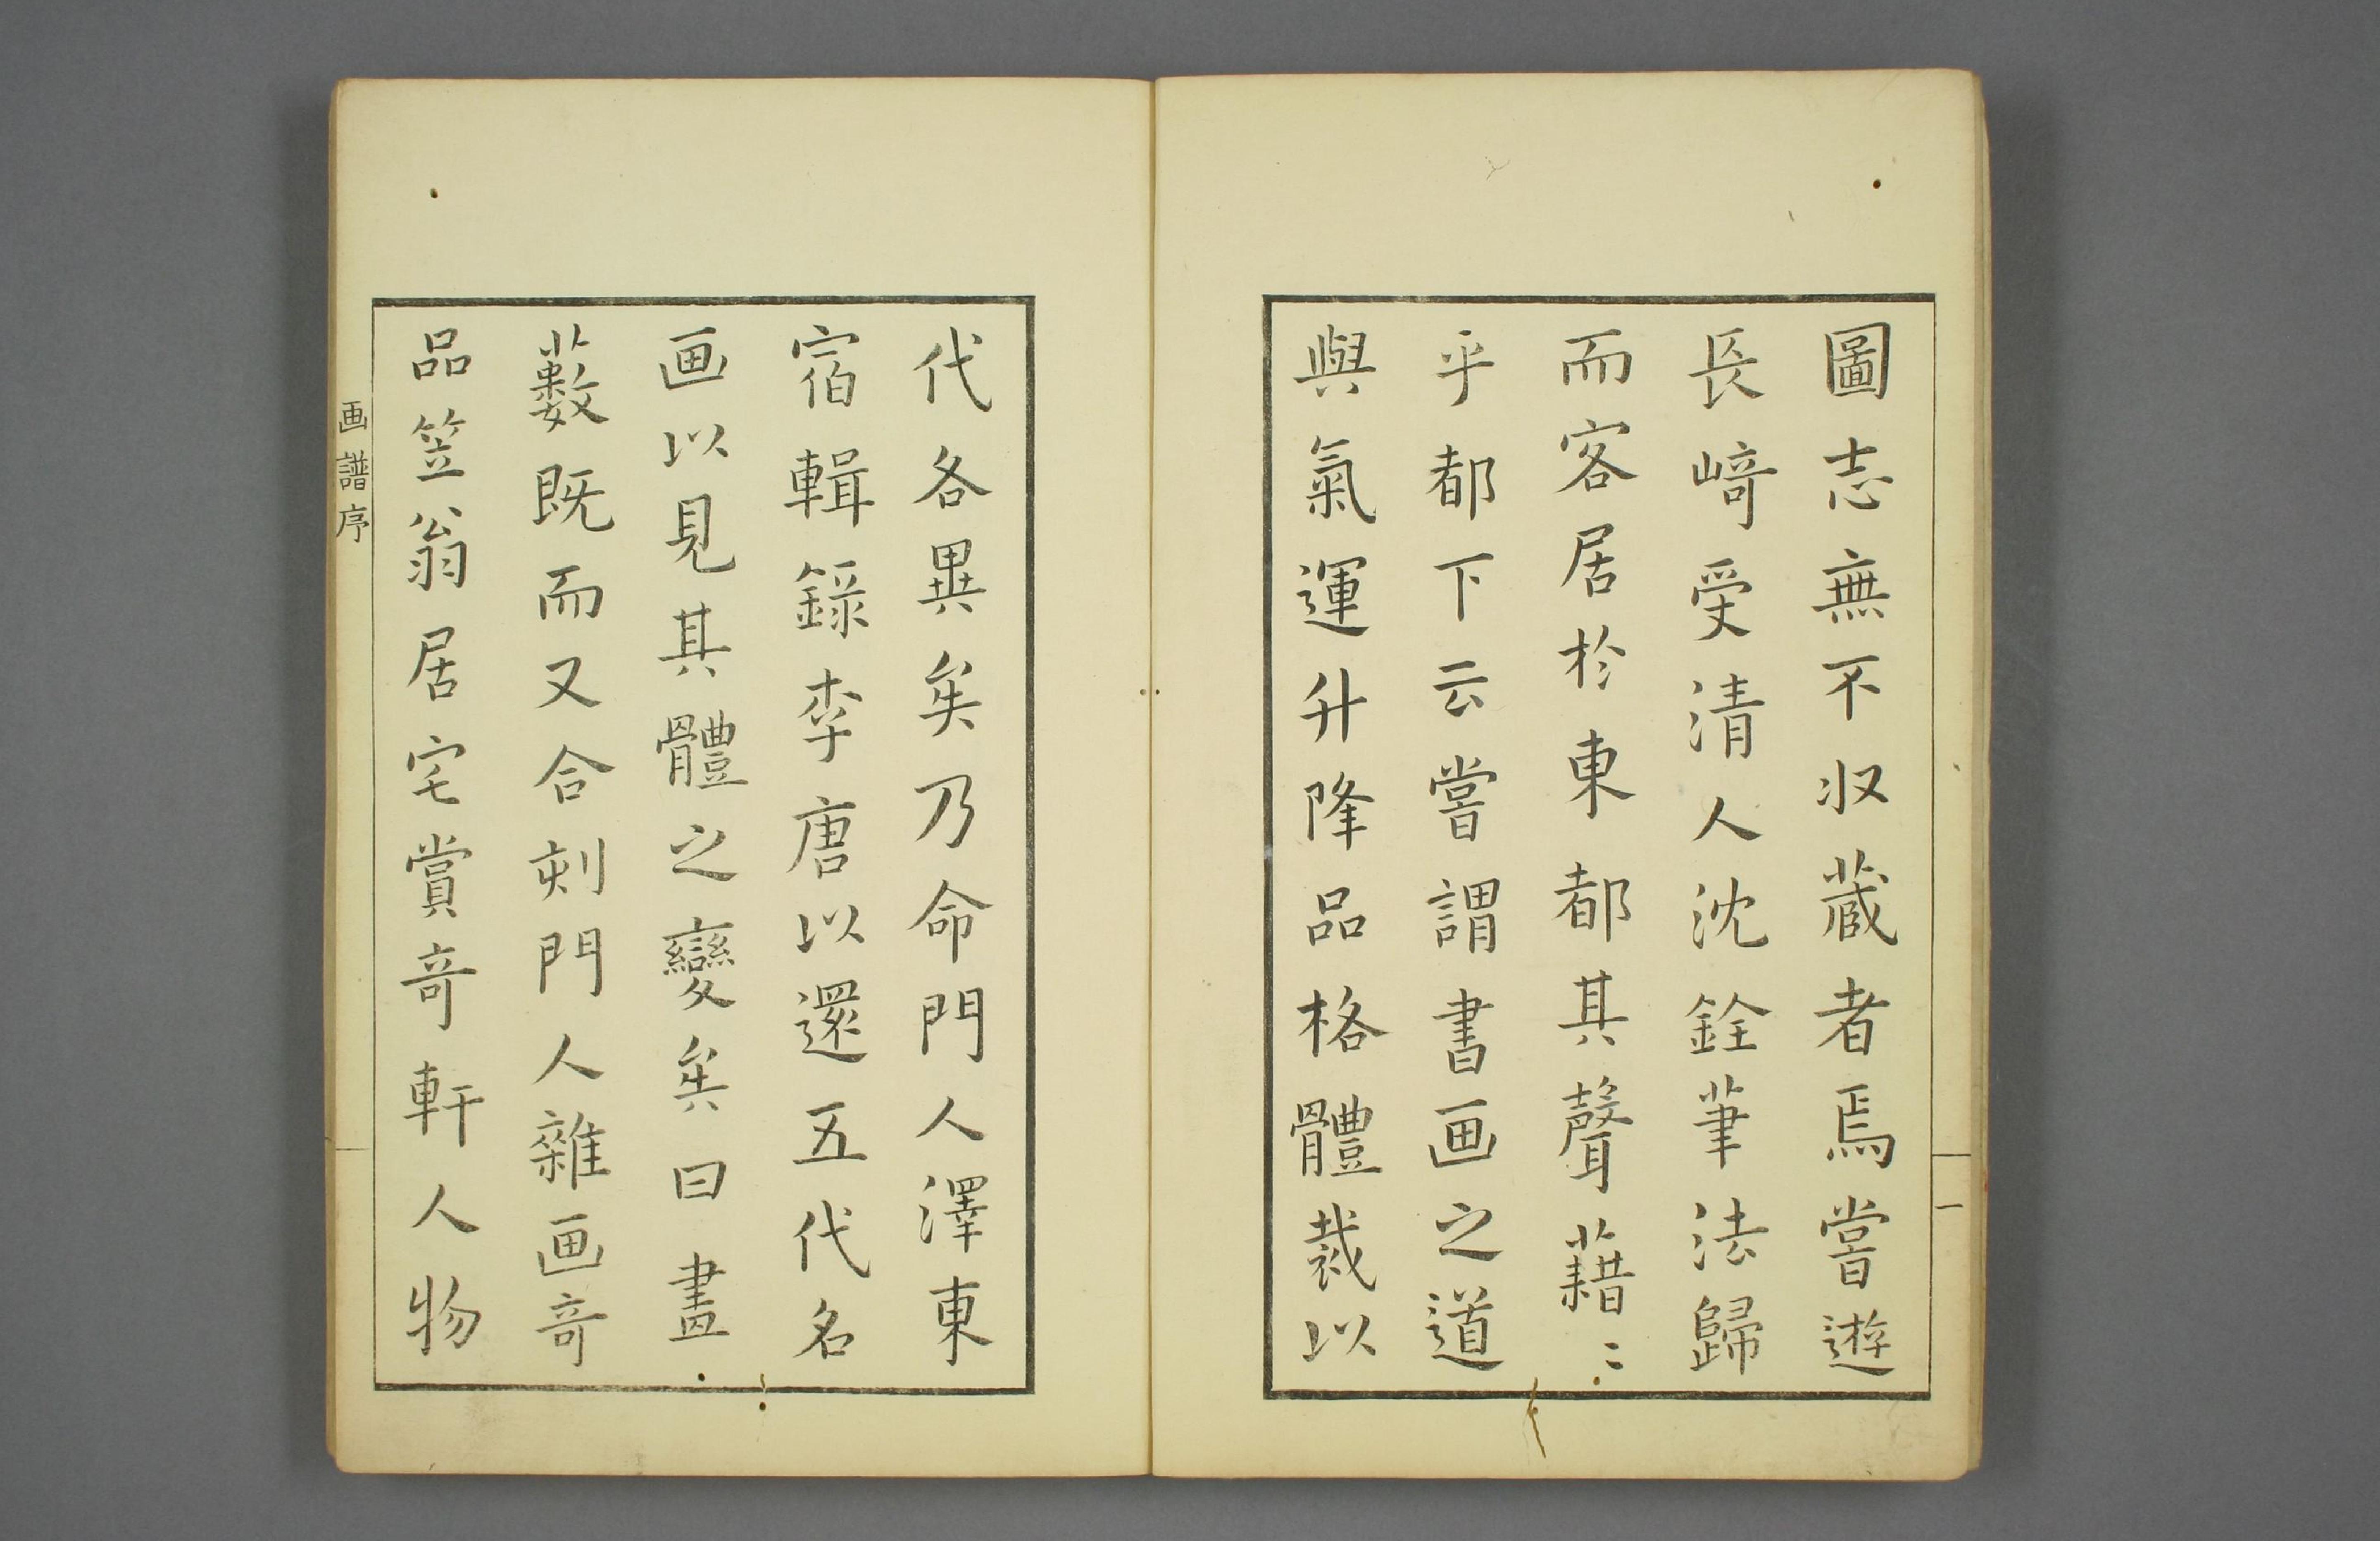 圖志無不収蔵者焉嘗遊
長﨑受清人沈銓筆法歸
而客居於東都其聲藉〻
乎都下云嘗謂書画之道
與氣運升降品格體裁以
一
代各異矣乃命門人澤東
宿輯録李唐以還五代名
画以見其體之變矣曰畫
藪既而又合刻門人雜画竒
品笠翁居宅賞竒軒人物
画譜序